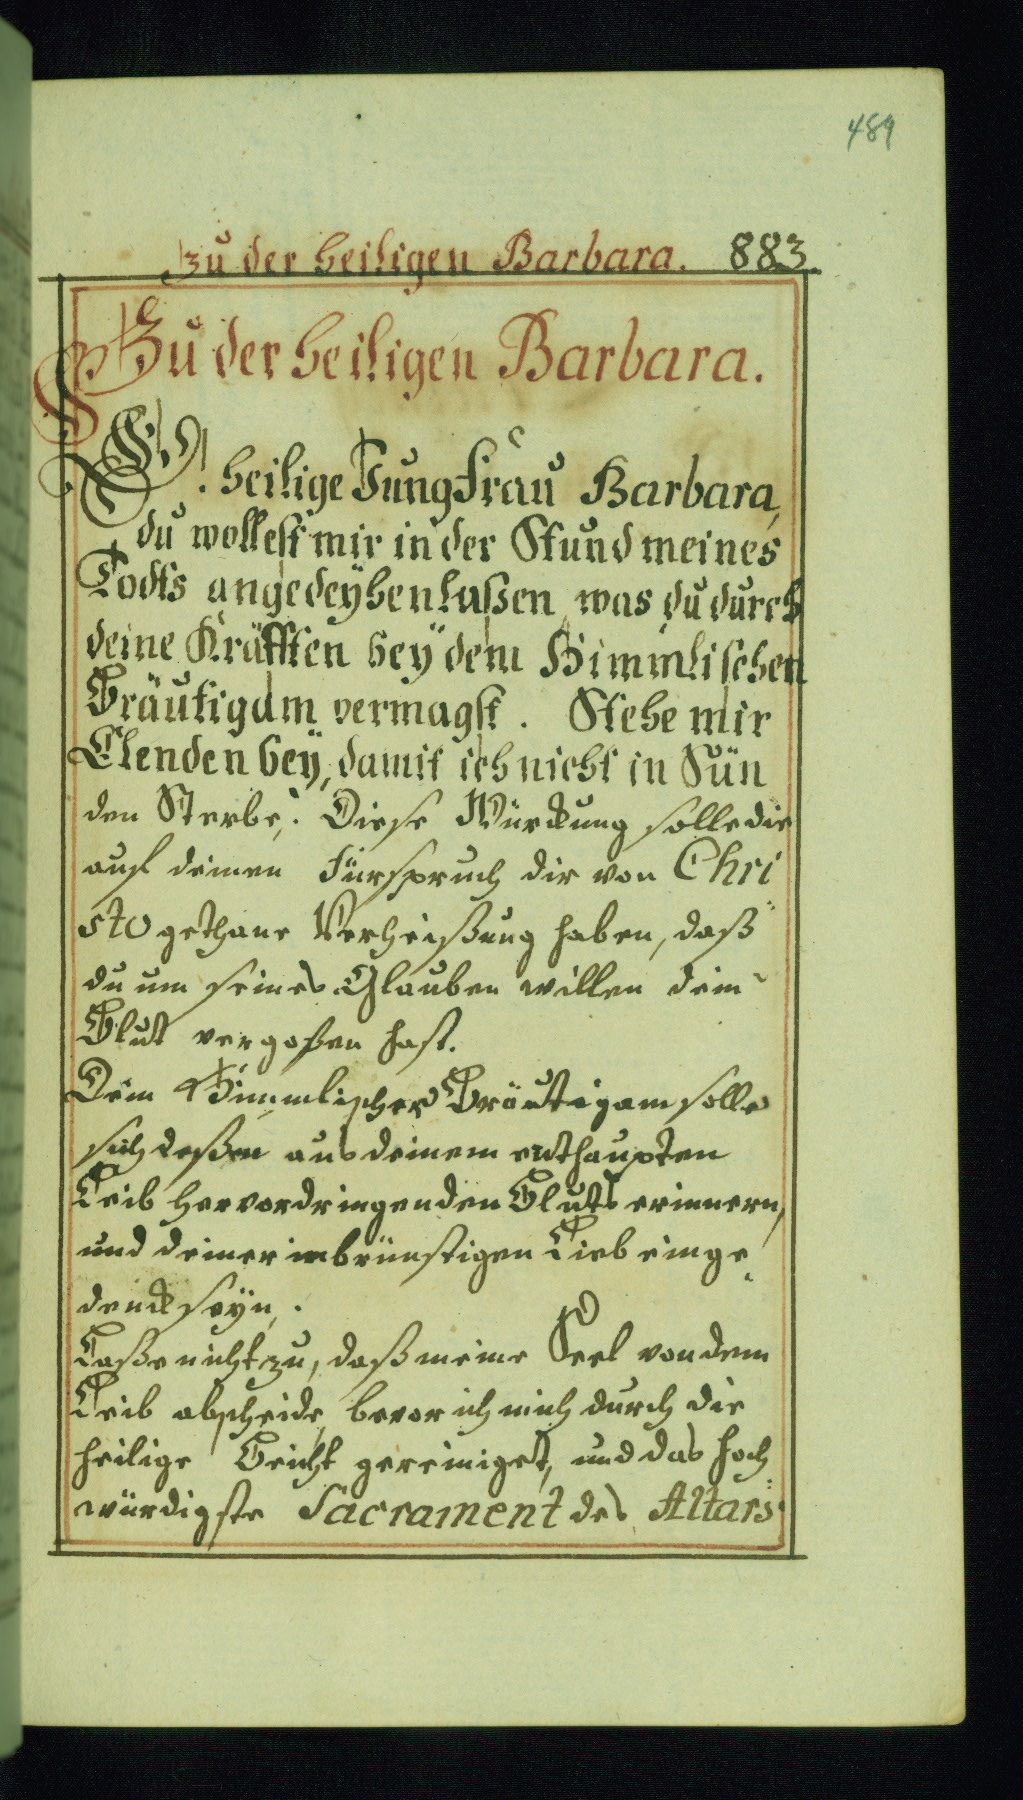 489
zu der heiligen Barbara. 883
Zu der heiligen Barbara.
O! heilige Jungfrau Barbara,
du wollest mir in der Stund meines
Todts angedeyhen laßen, was du durch
deine Kräfften bey dem Himmlischen
Bräutigam vermagst. Stehe mir
Elenden bey, damit ich nicht in Sün
den Sterbe. Diese Würckung solle die
auf deinen Fürspruch dir von Chri
sto gethane Verheißung haben, daß
du um seines Glauben willen dein
Blut vergoßen hast.
Dein Himmlischer Bräutigam solle
sich deßen aus deinem enthaupten
Leib hervordringenden Bluts erinnern,
und deiner inbrünstigen Lieb einge
denck seyn.
Laße nicht zu, daß meine Seel von dem
Leib abscheide, bevor ich mich durch die
heilige Beicht gereiniget, und das hoch
würdigste Sacrament des Altars